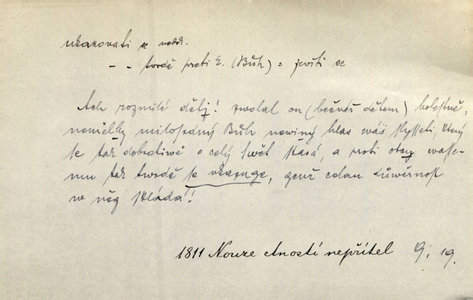 ukazovati se nebí.
- - tvrdě proti č. (Bůh) = zvíti se
Ach rozmilé dětj! zwolal on (bečvěš dětem) bolestně,
neměl by milosrdný Bůh newinný hlas wáš slysseti, který
se tak dobrotiwě o celý swět stará, a proti otcy wasse-
mu tak twrdě se ukazuge, genž celau důwěrnost
w něg skládá!
1811 Nouze ctností nepřítel 9, 19.